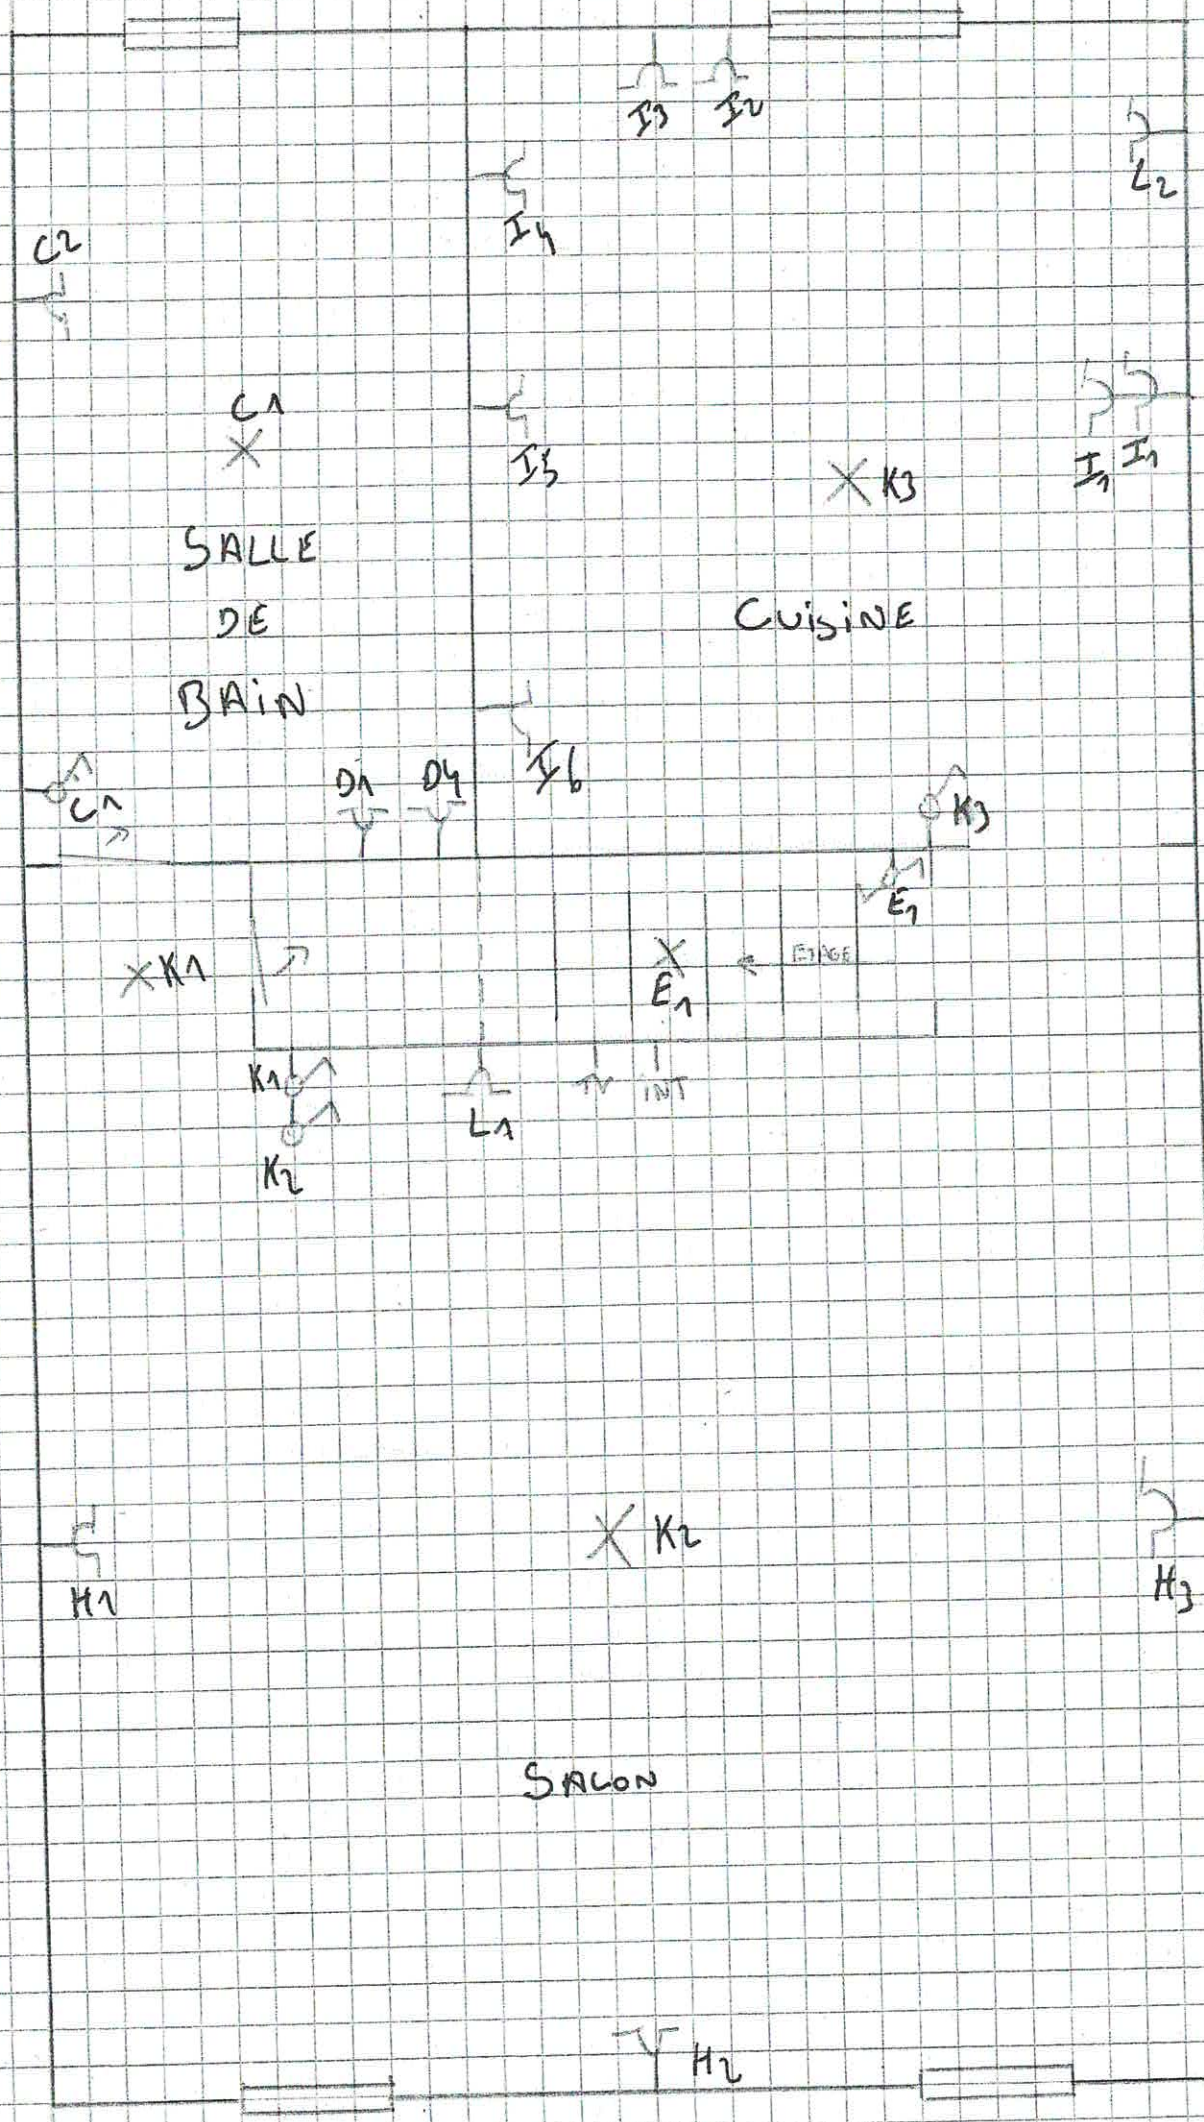 I3 I2
L2
I4
C2
C1
I5
K3
I1 I1
SALLE
DE
BAIN
CUISINE
I6
D1 D4
C1
K3
E1
K1
E1
ETAGE
K1
TV INT
L1
K2
K2
H1
H3
SALON
H2